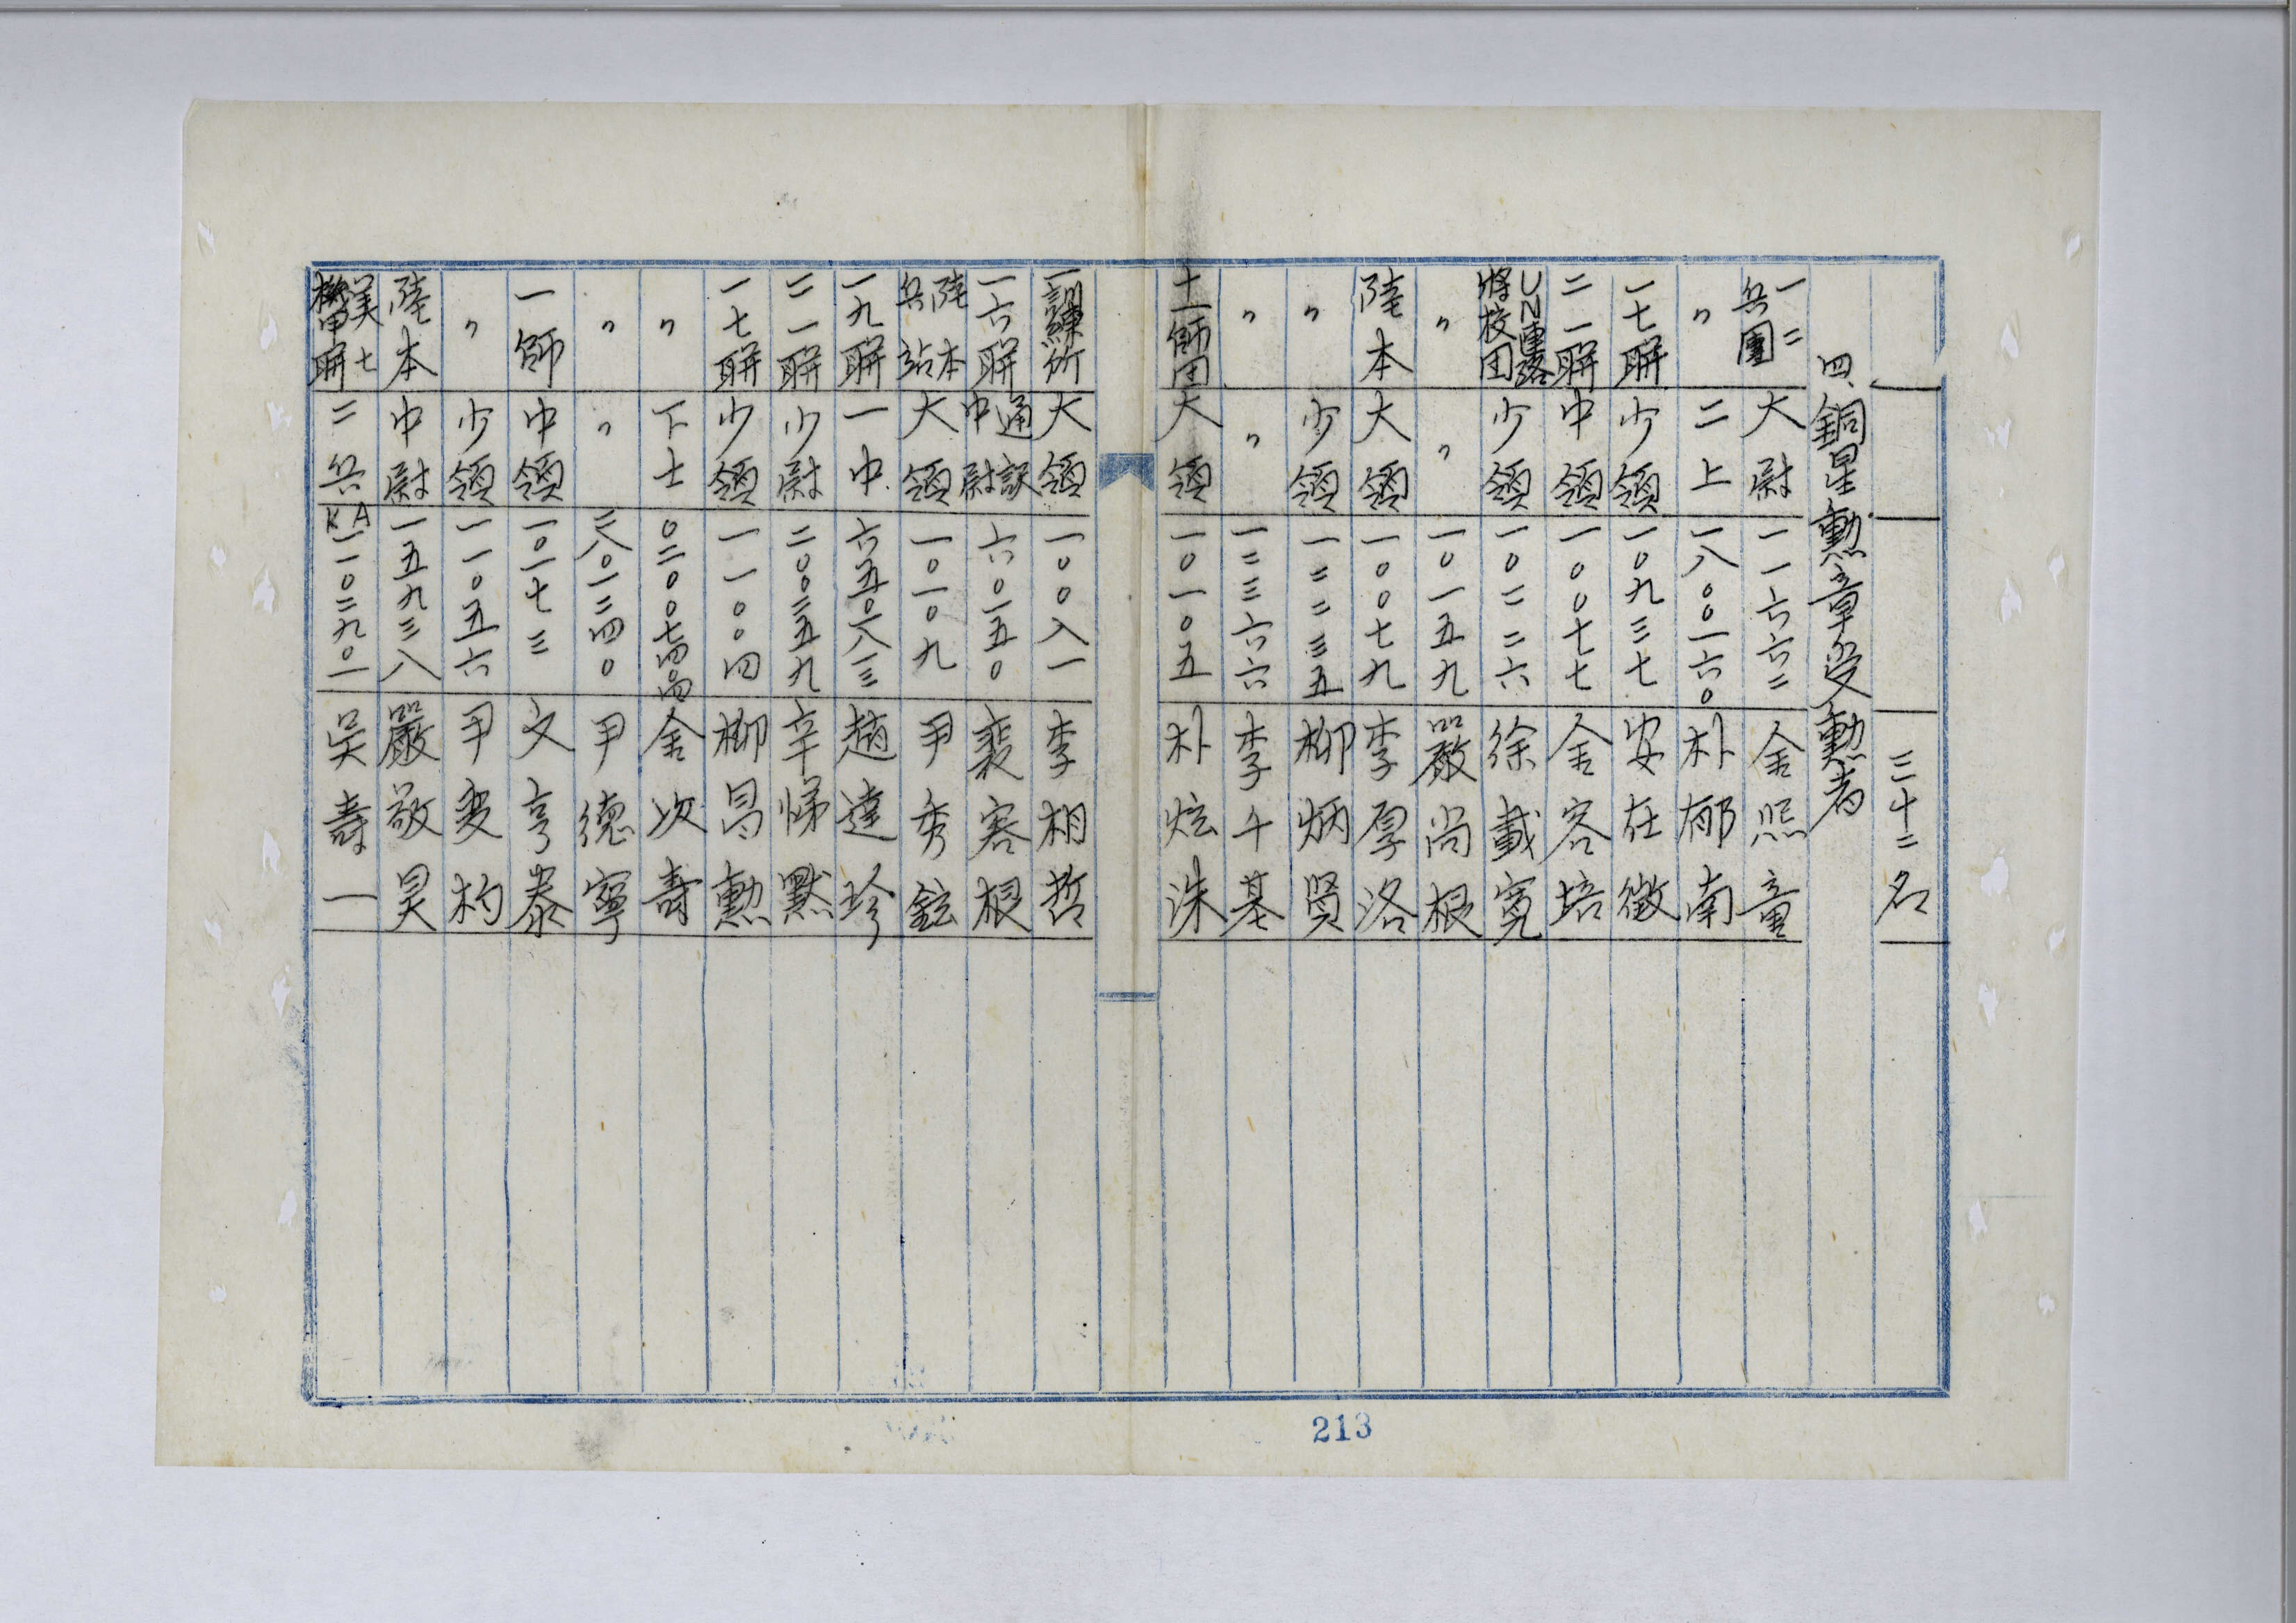 三十二名
四、銅星勲章受勲者
一二兵團 大尉 一一六六二 金熙童
〃 二上 一八〇〇一六〇 朴郁南
一七聯 少領 一〇九三七 安在徵
二一聯 中領 一〇〇七七 金容培
UN連絡將校団 少領 一〇二二六 徐載寛
〃 〃 一〇一五九 嚴尚根
陸本 大領 一〇〇七九 李厚洛
〃 少領 一二二三五 柳炳賢
〃 〃 一二三六六 李千基
十一師団 大領 一〇一〇五 朴炫洙
一訓練所 大領 一〇〇八一 李相哲
一六聯 通訳中尉 六〇一五〇 裵容根
陸本兵站 大領 一〇一〇九 尹秀鉉
一九聯 一中 六五〇一八三 趙達珍
二一聯 少尉 二〇〇三五九 辛悌默
一七聯 少領 一一〇〇四 柳昌勲
〃 下士 〇二〇〇七四〇四 金次壽
〃 〃 二八〇一二四〇 尹德寧
一師 中領 一〇一七三 文亨泰
〃 少領 一一〇五六 尹変杓
陸本 中尉 一五九三八 嚴敬昊
美七機甲聯 二兵 KA一一〇二九〇一 吳壽一
213